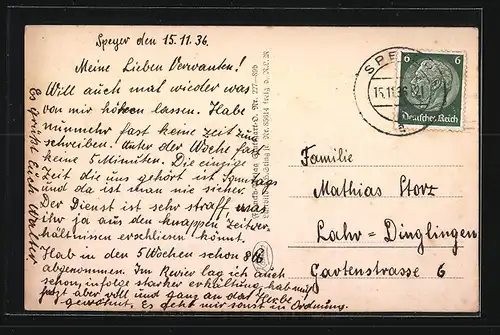 Speyer den 15.11.36.
Meine Lieben Verwanten!
Will auch mal wieder was
von mir hören lassen. Habe
nunmehr fast keine Zeit zum
schreiben. Unter der Woche fast
keine 5 Minuten. Die einzige
Zeit die uns gehört ist Sonntags
und da ist man nie sicher.
Der Dienst ist sehr straff was
ihr ja aus den knappen Zeitver
hältnissen erschliesen könnt.
Hab in den 5 Wochen schon 8
abgenommen. Im Revier lag ich auch
schon, infolge starker erkältung, hab mich
jetzt aber voll und ganz an das
gewöhnt. Es geht mir sonst in Ordnung.
Es grüßt Euch Walter.
SPEYER
15.11.36
a
6 6
Deutsches Reich
Familie
Mathias Storz
Lahr-Dinglingen
Gartenstrasse 6